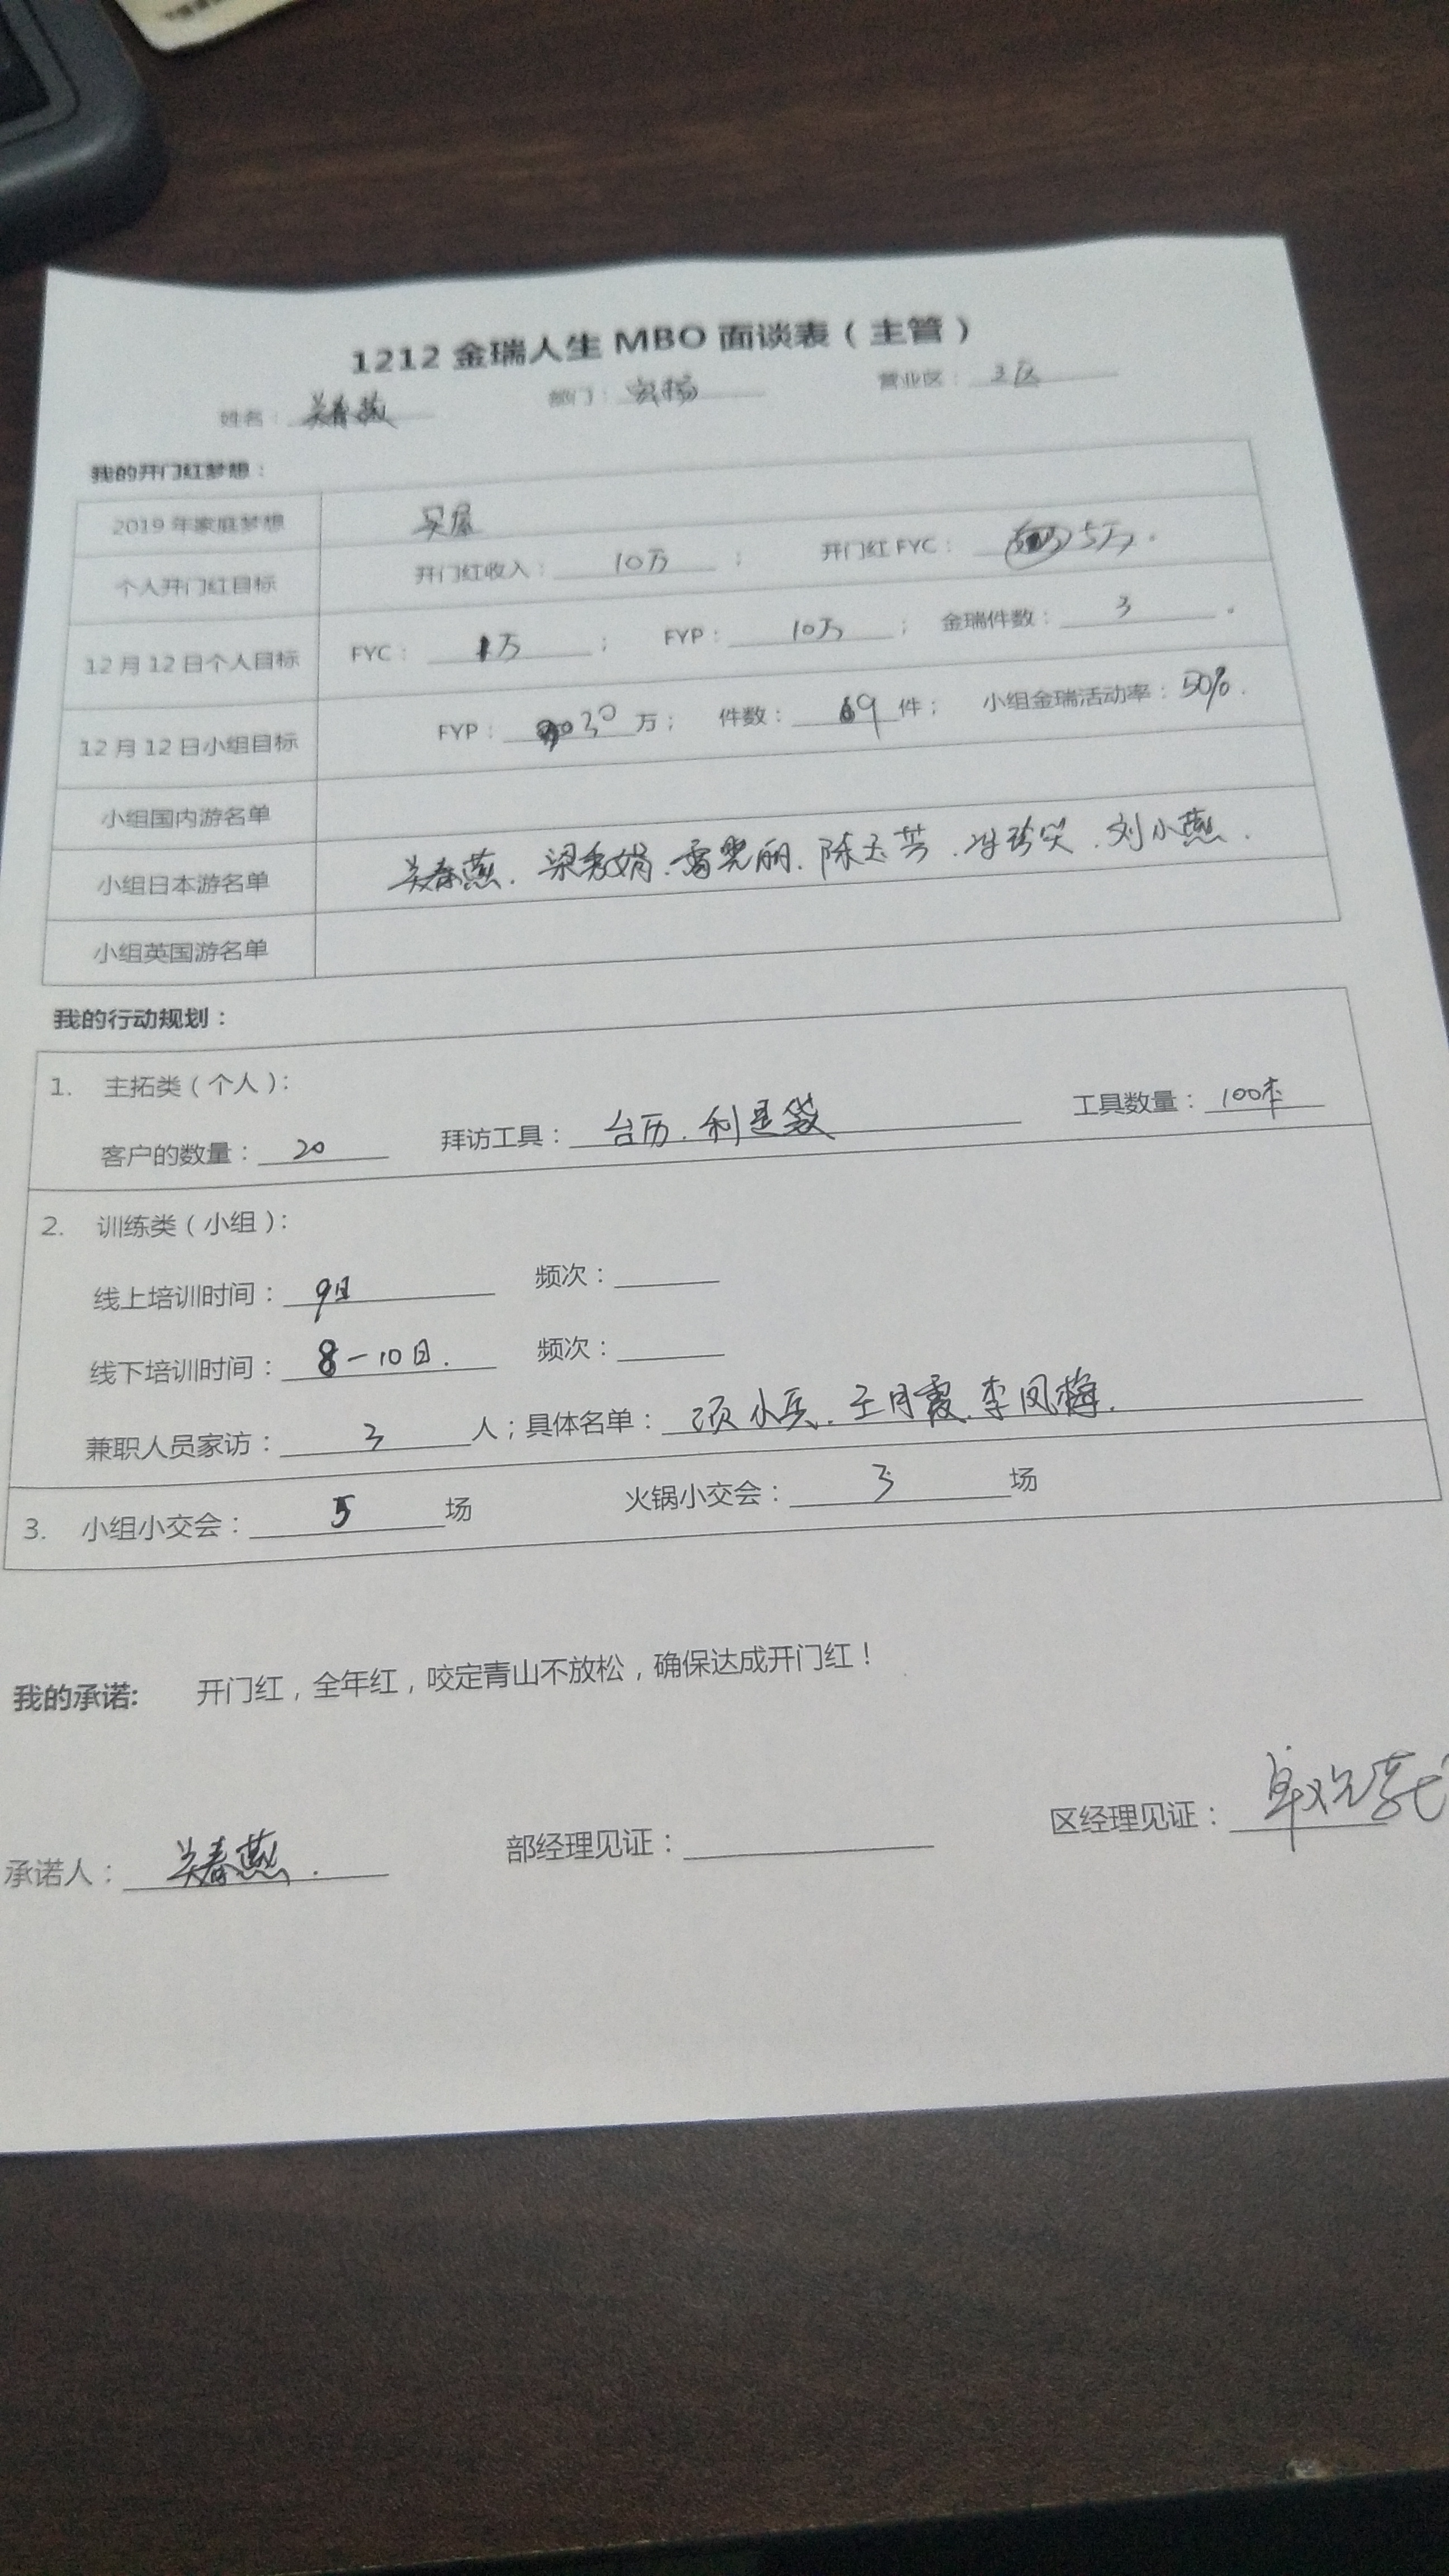 1212 金瑞人生 MBO 面谈表（主管）
姓名：吴春燕 部门：宏杨 营业区：3区
我的开门红梦想：
2019 年家庭梦想 买屋
个人开门红目标 开门红收入：10万； 开门红 FYC：5万。
12 月 12 日个人目标 FYC：1万； FYP：10万； 金瑞件数：3。
12 月 12 日小组目标 FYP：30万； 件数：9件； 小组金瑞活动率：50%.
小组国内游名单
小组日本游名单 吴春燕.梁秀娟.雷雪丽.陈玉芳.冯珍笑.刘小燕.
小组英国游名单
我的行动规划：
1. 主拓类（个人）：
客户的数量：20 拜访工具：台历.利是袋 工具数量：100本
2. 训练类（小组）：
线上培训时间：9日 频次：
线下培训时间：8－10日. 频次：
兼职人员家访：3人；具体名单：项小兵.王月霞.李凤梅.
3. 小组小交会：5场 火锅小交会：3场
我的承诺: 开门红，全年红，咬定青山不放松，确保达成开门红！
承诺人：吴春燕. 部经理见证： 区经理见证：